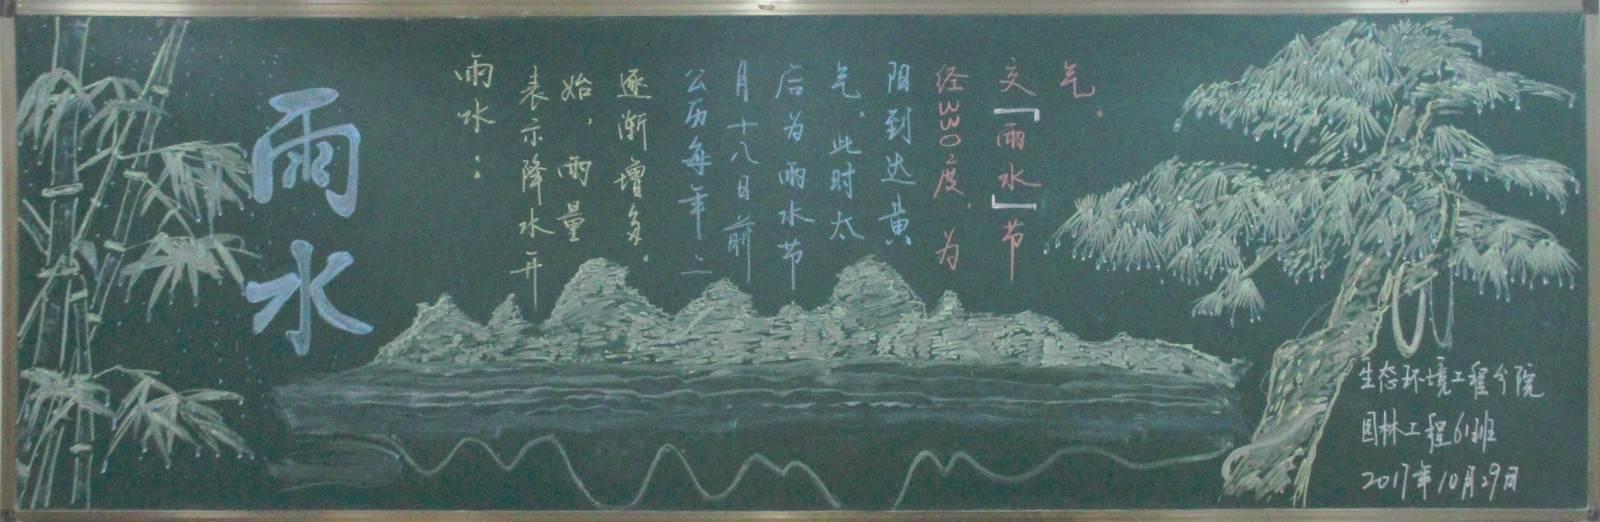 雨水
雨水：
表示降水开
始，雨量
逐渐增多。
公历每年二
月十八日前
后为雨水节
气。此时太
阳到达黄
经330度，为
交「雨水」节
气。
生态环境工程分院
园林工程61班
2017年10月29日